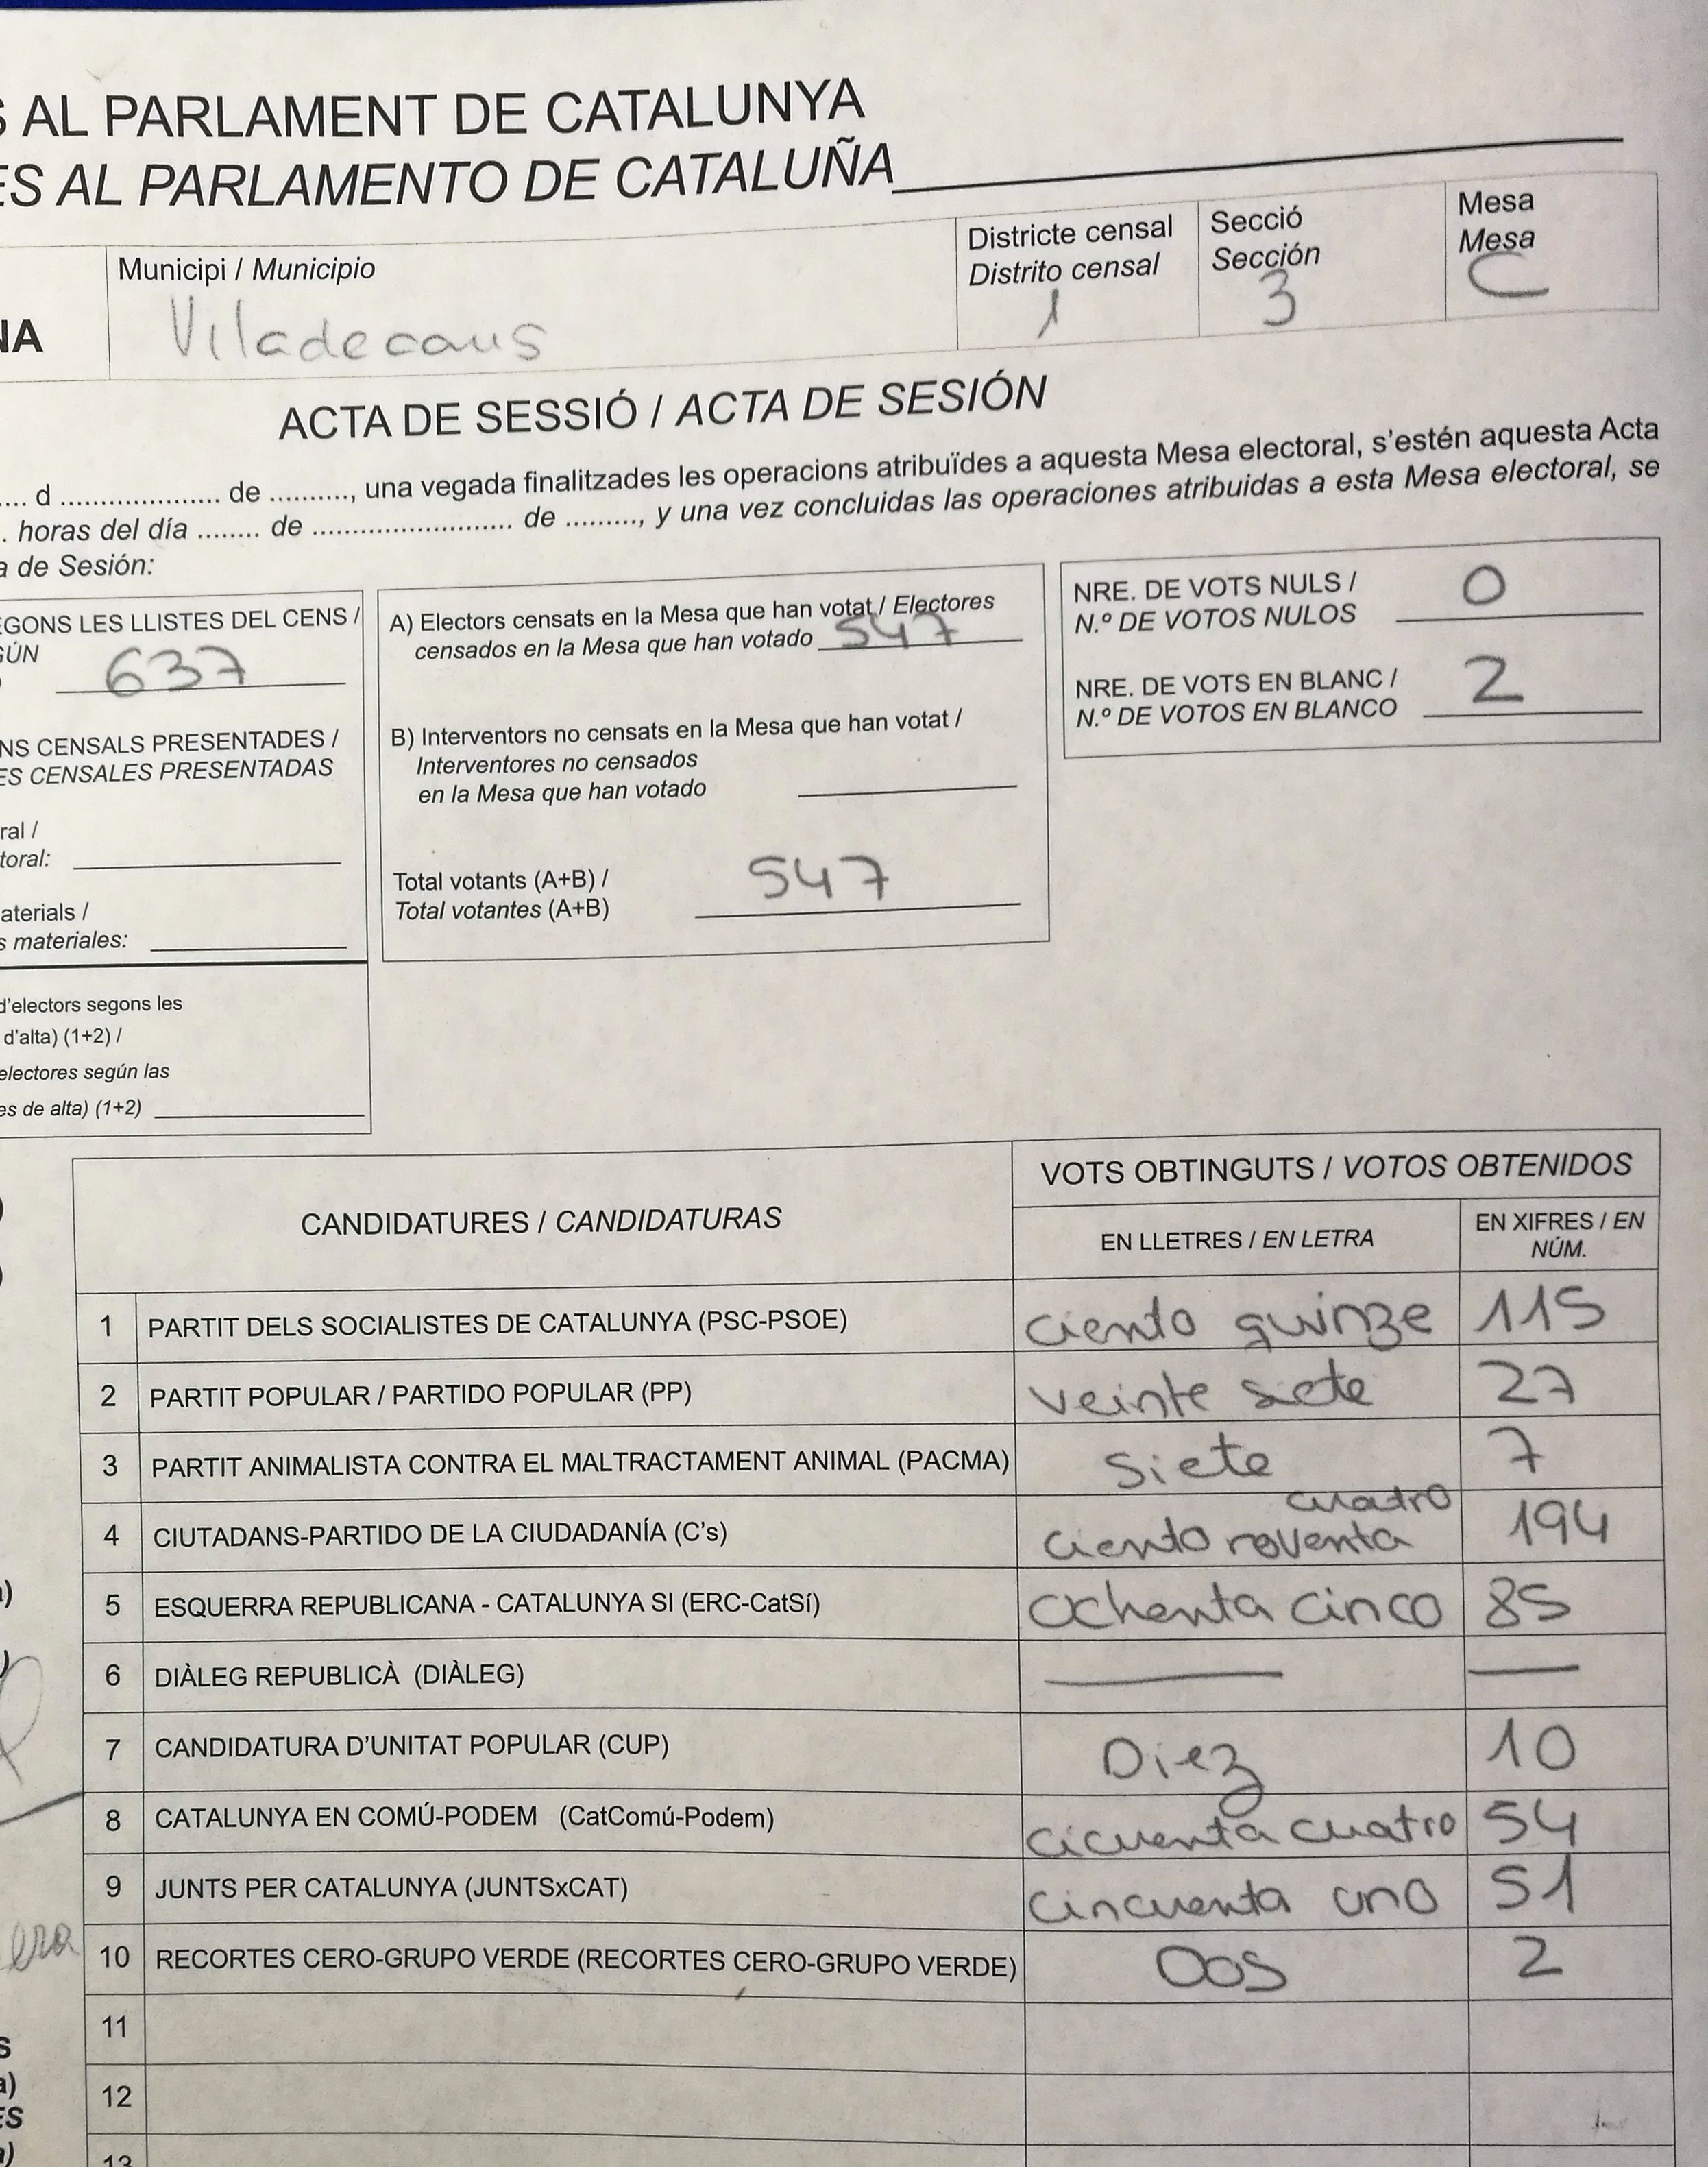 S AL PARLAMENT DE CATALUNYA
ES AL PARLAMENTO DE CATALUÑA
NA
Municipi / Municipio
Viladecans
Districte censal
Distrito censal
1
Secció
Sección
3
Mesa
Mesa
C
ACTA DE SESSIÓ / ACTA DE SESIÓN
.... d ..................... de .........., una vegada finalitzades les operacions atribuïdes a aquesta Mesa electoral, s'estén aquesta Acta
. horas del día ........ de ......................... de ........., y una vez concluidas las operaciones atribuidas a esta Mesa electoral, se
a de Sesión:
EGONS LES LLISTES DEL CENS /
GÚN
637
NS CENSALS PRESENTADES /
ES CENSALES PRESENTADAS
ral /
toral:
aterials /
s materiales:
d'electors segons les
d'alta) (1+2) /
electores según las
es de alta) (1+2)
A) Electors censats en la Mesa que han votat / Electores
censados en la Mesa que han votado 547
B) Interventors no censats en la Mesa que han votat /
Interventores no censados
en la Mesa que han votado
Total votants (A+B) /
Total votantes (A+B)
547
NRE. DE VOTS NULS /
N.º DE VOTOS NULOS
0
NRE. DE VOTS EN BLANC /
N.º DE VOTOS EN BLANCO
2
CANDIDATURES / CANDIDATURAS
VOTS OBTINGUTS / VOTOS OBTENIDOS
EN LLETRES / EN LETRA
EN XIFRES / EN
NÚM.
1 PARTIT DELS SOCIALISTES DE CATALUNYA (PSC-PSOE) ciento quinze 115
2 PARTIT POPULAR / PARTIDO POPULAR (PP) veinte siete 27
3 PARTIT ANIMALISTA CONTRA EL MALTRACTAMENT ANIMAL (PACMA) siete 7
4 CIUTADANS-PARTIDO DE LA CIUDADANÍA (C's) ciento noventa cuatro 194
5 ESQUERRA REPUBLICANA - CATALUNYA SI (ERC-CatSí) ochenta cinco 85
6 DIÀLEG REPUBLICÀ (DIÀLEG) — —
7 CANDIDATURA D'UNITAT POPULAR (CUP) Diez 10
8 CATALUNYA EN COMÚ-PODEM (CatComú-Podem) cicuenta cuatro 54
9 JUNTS PER CATALUNYA (JUNTSxCAT) cincuenta uno 51
10 RECORTES CERO-GRUPO VERDE (RECORTES CERO-GRUPO VERDE) Dos 2
11
12
13